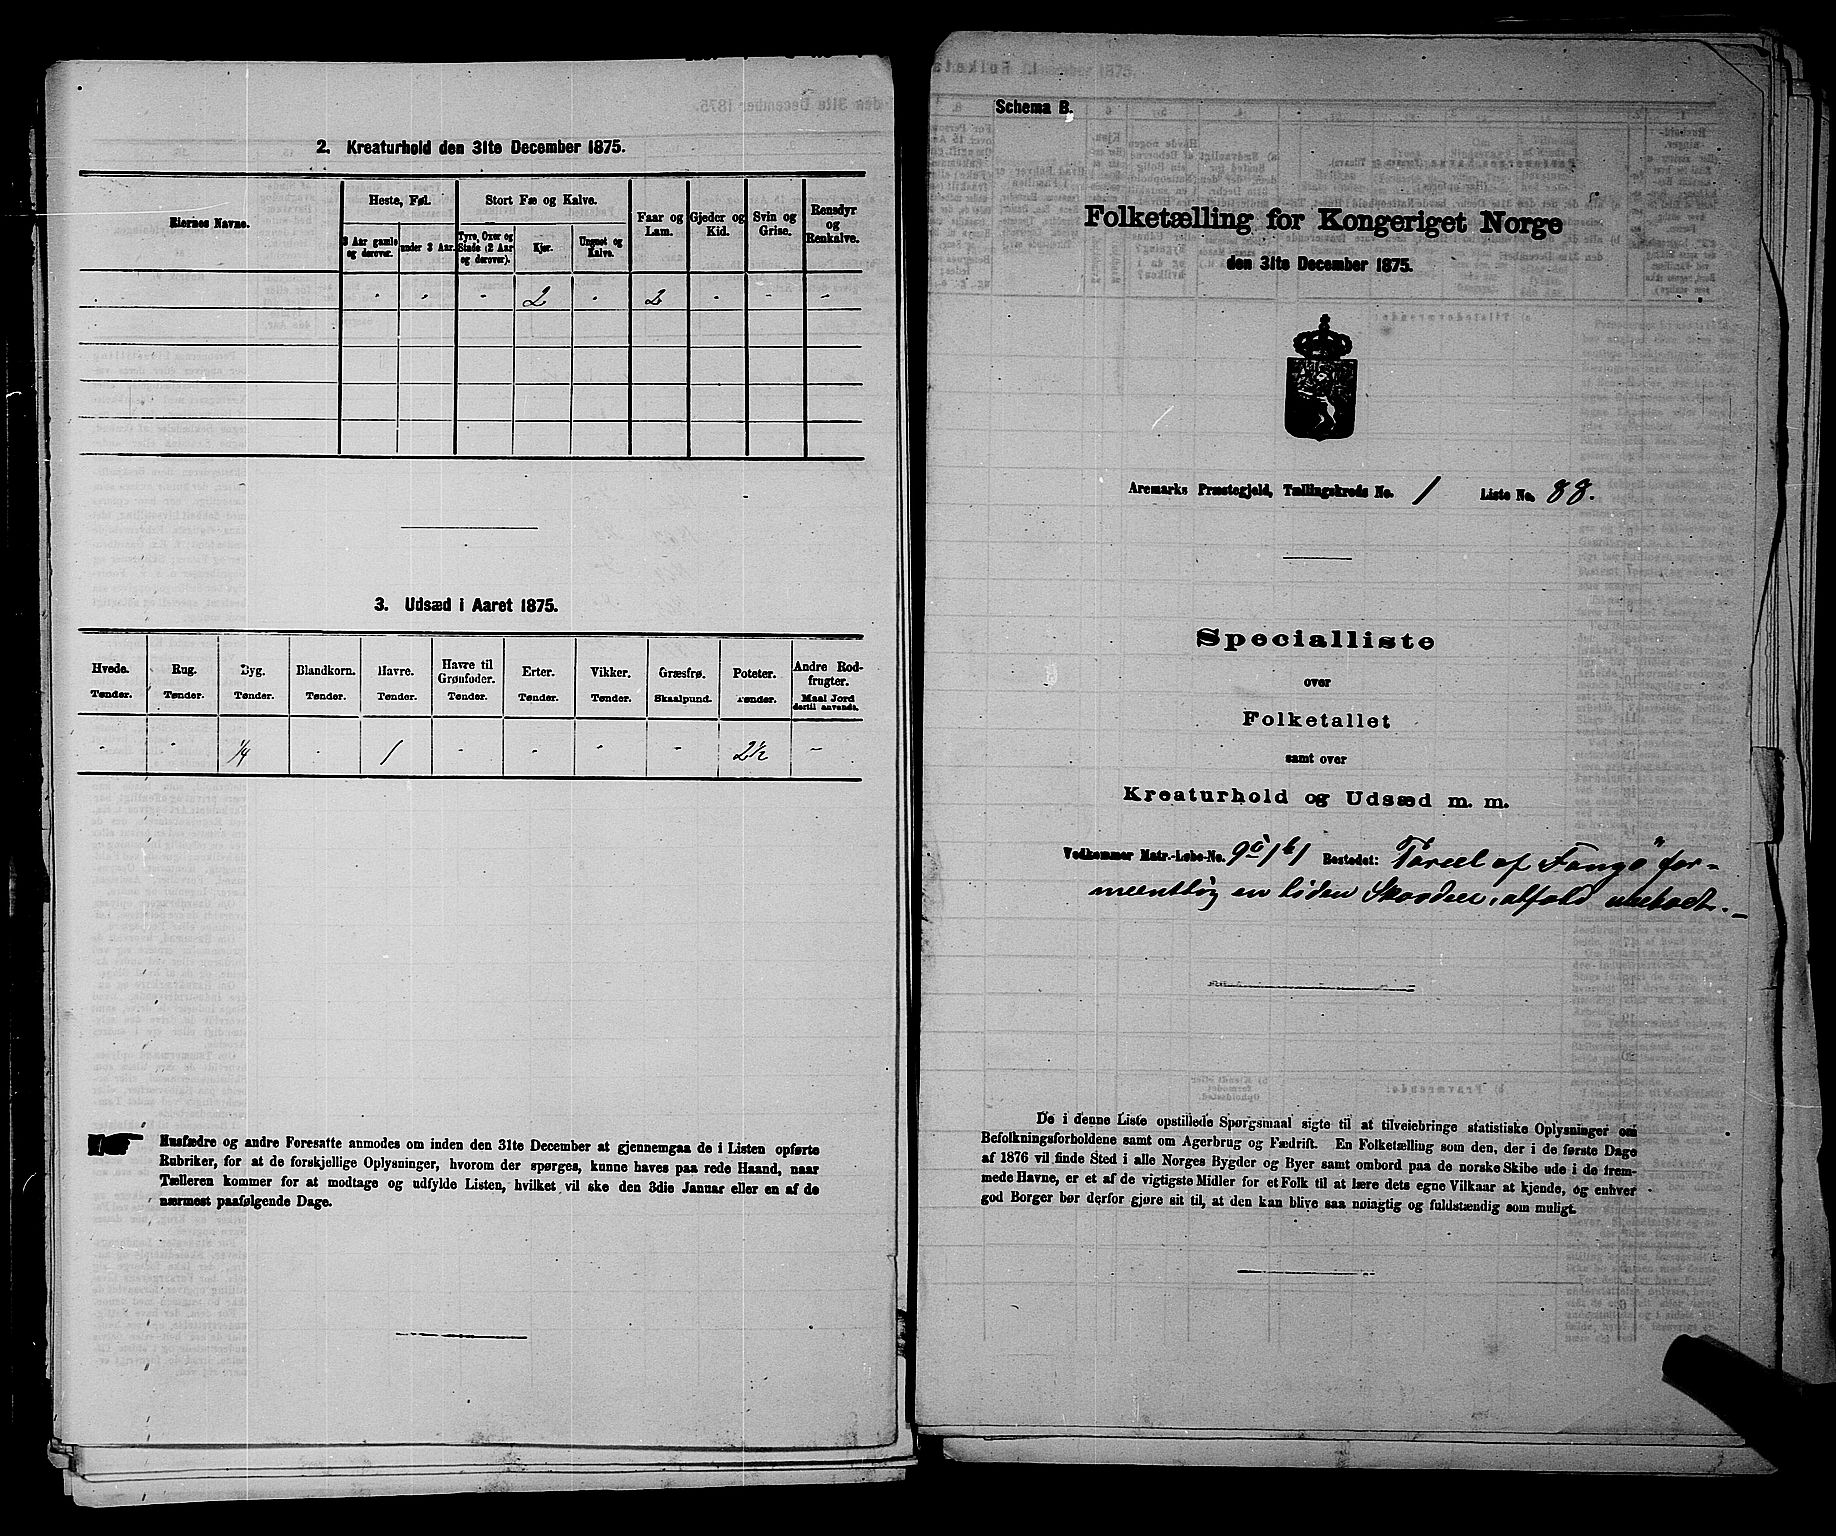 2. Kreaturhold den 31te December 1875.
Eiernes Navne.
Heste, Føl.
Stort Fæ og Kalve.
Faar og Lam.
Gjeder og Kid.
Svin og Grise.
Rensdyr og Renkalve.
3 Aar gamle og derover.
under 3 Aar.
Tyre, Oxer og Stude (2 Aar og derover).
Kjør.
Ungnøt og Kalve.
" " " 2 " 2 " " "
3. Udsæd i Aaret 1875.
Hvede. Rug. Byg. Blandkorn. Havre. Havre til Grønfoder. Erter. Vikker. Græsfrø. Poteter. Andre Rodfrugter.
Tønder. Tønder. Tønder. Tønder. Tønder. Tønder. Tønder. Tønder. Skaalpund. Tønder. Maal Jord dertil anvendt.
" " 1/4 " 1 " " " " 2 1/2 "
Husfædre og andre Foresatte anmodes om inden den 31te December at gjennemgaa de i Listen opførte
Rubriker, for at de forskjellige Oplysninger, hvorom der spørges, kunne haves paa rede Haand, naar
Tælleren kommer for at modtage og udfylde Listen, hvilket vil ske den 3die Januar eller en af de
nærmest paafølgende Dage.
Schema B.
Folketælling for Kongeriget Norge
den 31te December 1875.
Aremarks Præstegjeld, Tællingskreds No. 1 Liste No. 88.
Specialliste
over
Folketallet
samt over
Kreaturhold og Udsæd m. m.
Vedkommer Matr.-Løbe-No. 9a, 1b1 Bostedet: "Parcel af Fange" for-
mentlig en liden Skovdeel, alfald ubeboet.
De i denne Liste opstillede Spørgsmaal sigte til at tilveiebringe statistiske Oplysninger om
Befolkningsforholdene samt om Agerbrug og Fædrift. En Folketælling som den, der i de første Dage
af 1876 vil finde Sted i alle Norges Bygder og Byer samt ombord paa de norske Skibe ude i de frem-
mede Havne, er et af de vigtigste Midler for et Folk til at lære dets egne Vilkaar at kjende, og enhver
god Borger bør derfor gjøre sit til, at den kan blive saa nøiagtig og fuldstændig som muligt.